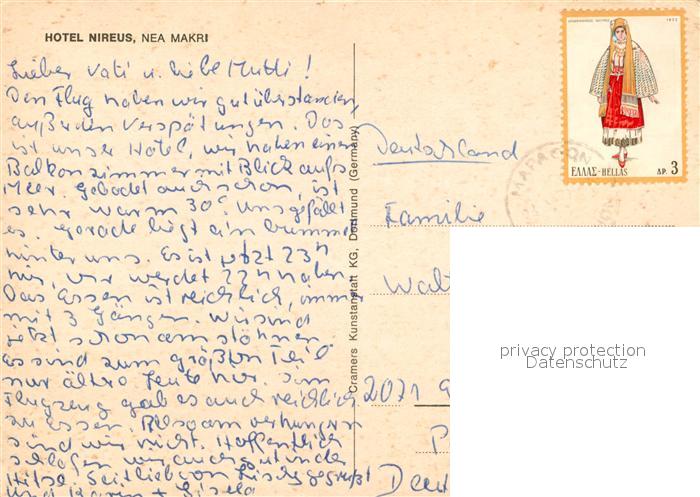 HOTEL NIREUS, NEA MAKRI
Lieber Vati u. liebe Mutti!
Den Flug haben wir gut überstanden,
außer den Verspätungen. Das
ist unser Hotel, wir haben einen
Balkonzimmer mit Blick aufs
Meer. Gebadet auch schon, ist
sehr warm 30°. Uns gefällt
es. Gerade liegt ein Bummel
hinter uns. Es ist jetzt 23h
wir, ihr werdet 22h haben.
Das Essen ist reichlich, immer
mit 3 Gängen. Wir sind
jetzt schon am stöhnen.
Es sind zum größten Teil
nur ältre Leute hier. Im
Flugzeug gab es auch reichlich
zu essen. Also am verhungern
sind wir nicht. Hoffentlich
schlafen wir auch gut in der
Hitze. Seit lieb von uns gegrüßt
und Karin + Gisela
Cramers Kunstanstalt KG, Dortmund (Germany)
1972
ΕΛΛΑΣ-HELLAS ΔΡ. 3
Deutschland
Familie
Walt
2071
privacy protection
Datenschutz